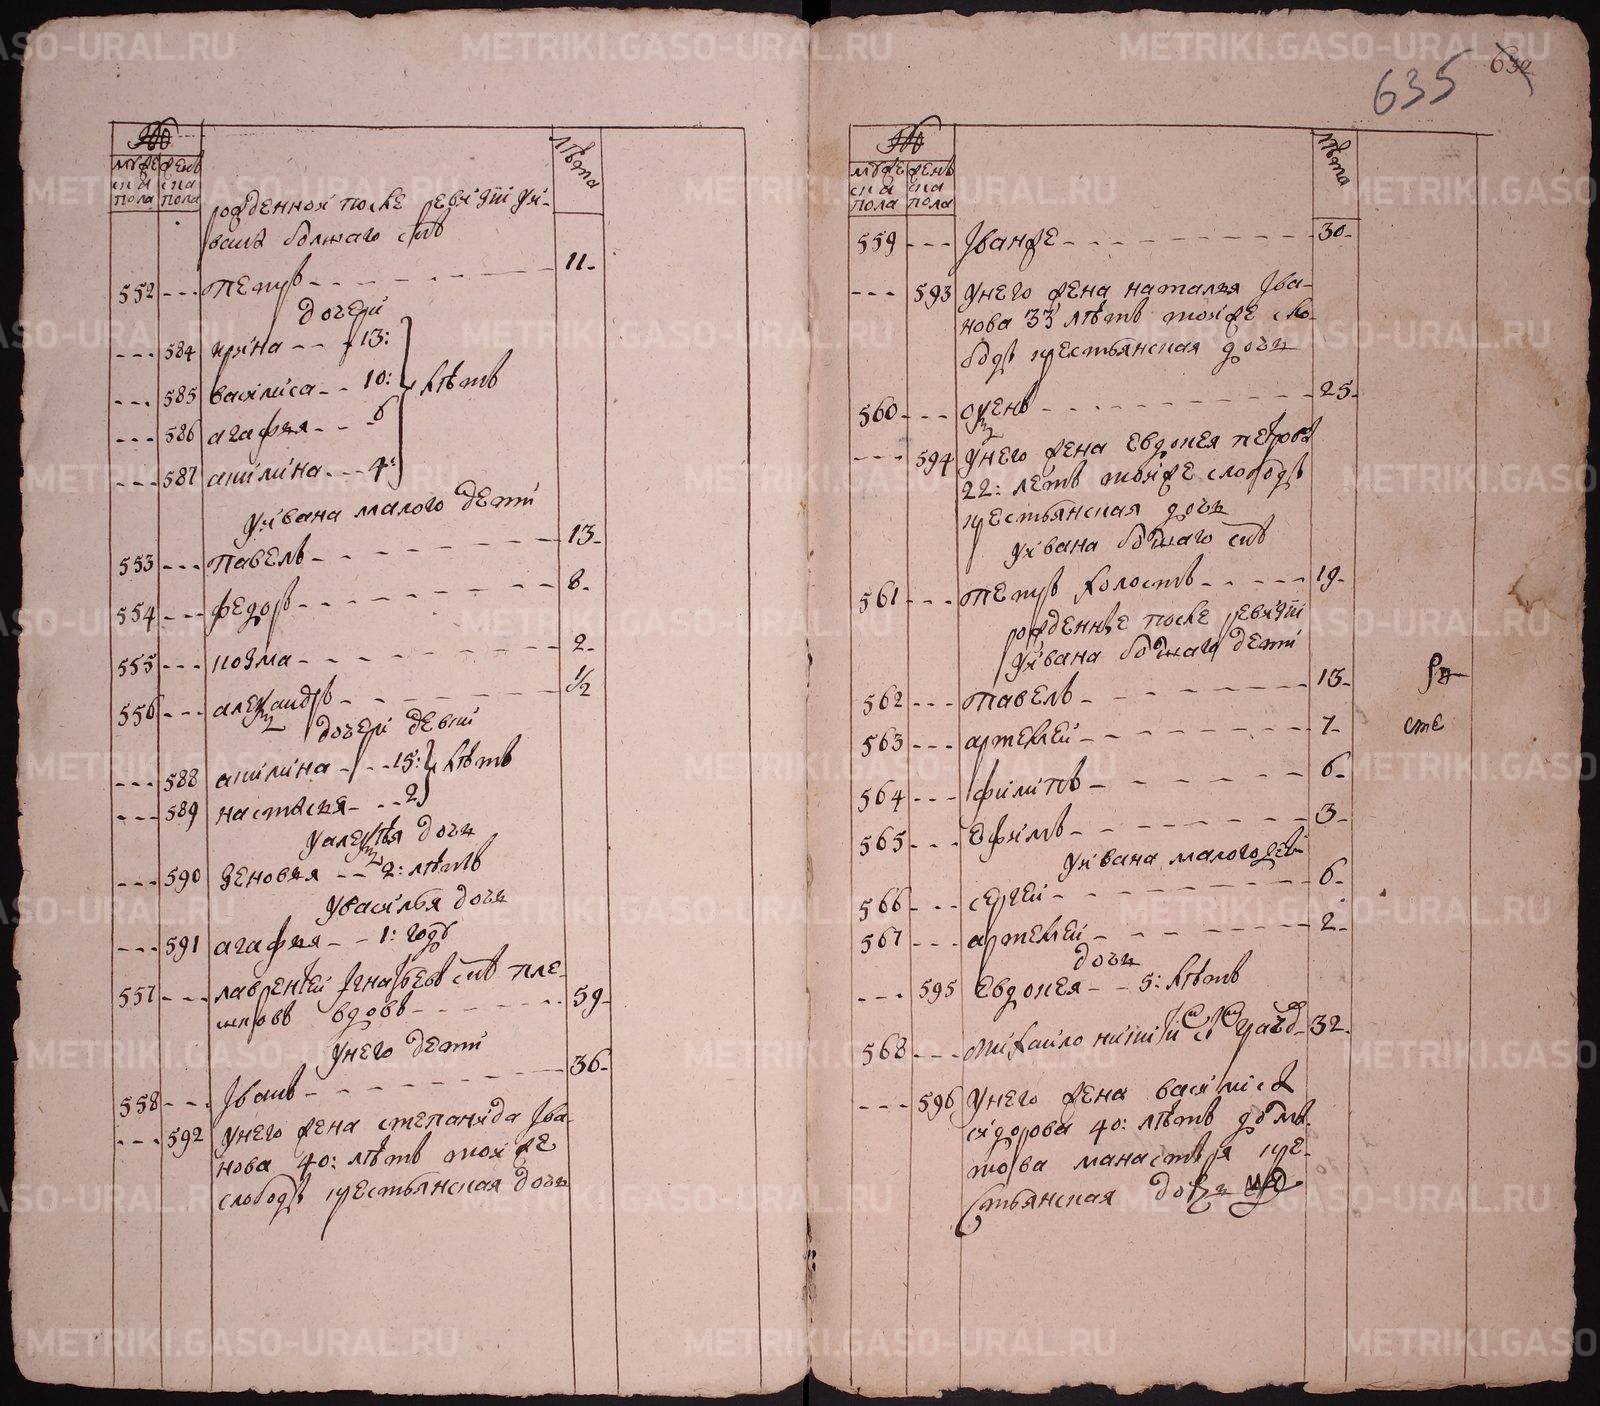 №
мужеска пола
женска пола
лѣта
рожденной после ревизiи уи-
вана болшаго снъ
552 --- петръ 11
дочери
--- 584 ирина --- 13:
--- 585 василиса -- 10: лѣтъ
--- 586 агафья --- 6
--- 587 акилина --- 4:
уивана малого дети
553 --- павелъ 13
554 --- федоръ 8
555 --- козма 2
556 --- александръ 1/2
дочери девки
--- 588 акилина --- 15: лѣтъ
--- 589 настасья --- 2
уалексѣя дочь
--- 590 зеновья -- 2: лѣтъ
увасилья дочь
--- 591 агафья -- 1: годъ
557 --- лаврентей игнатьевъ снъ пле-
шковъ вдовъ 59
унего дети
558 --- Иванъ 36
--- 592 унего жена степанида Ива-
нова 40: лѣтъ тойже
слободы крестьянская дочь
635
632
№
мужеска пола
женска пола
лѣта
559 --- Иванже 30
--- 593 унего жена наталья Ива-
нова 33 лѣтъ тойже сло-
боды крестьянская дочь
560 --- 25
--- 594 унего жена Евдокея петрова
22: летъ тойже слободы
крестьянская дочь
уивана болшаго снъ
561 --- петръ холостъ 19
рожденные после ревизiи
уивана болшаго дети
562 --- павелъ 13
563 --- артемей 7
564 --- филипъ 6
565 --- Ефимъ 3
уивана малого дети
566 --- сергей 6
567 --- артемей 2
дочь
--- 595 Евдокея -- 5: лѣтъ
568 --- михайло никитинъ снъ 32
--- 596 унего жена василиса
сидорова 40: лѣтъ далма-
това манастыря кре-
стьянская дочь